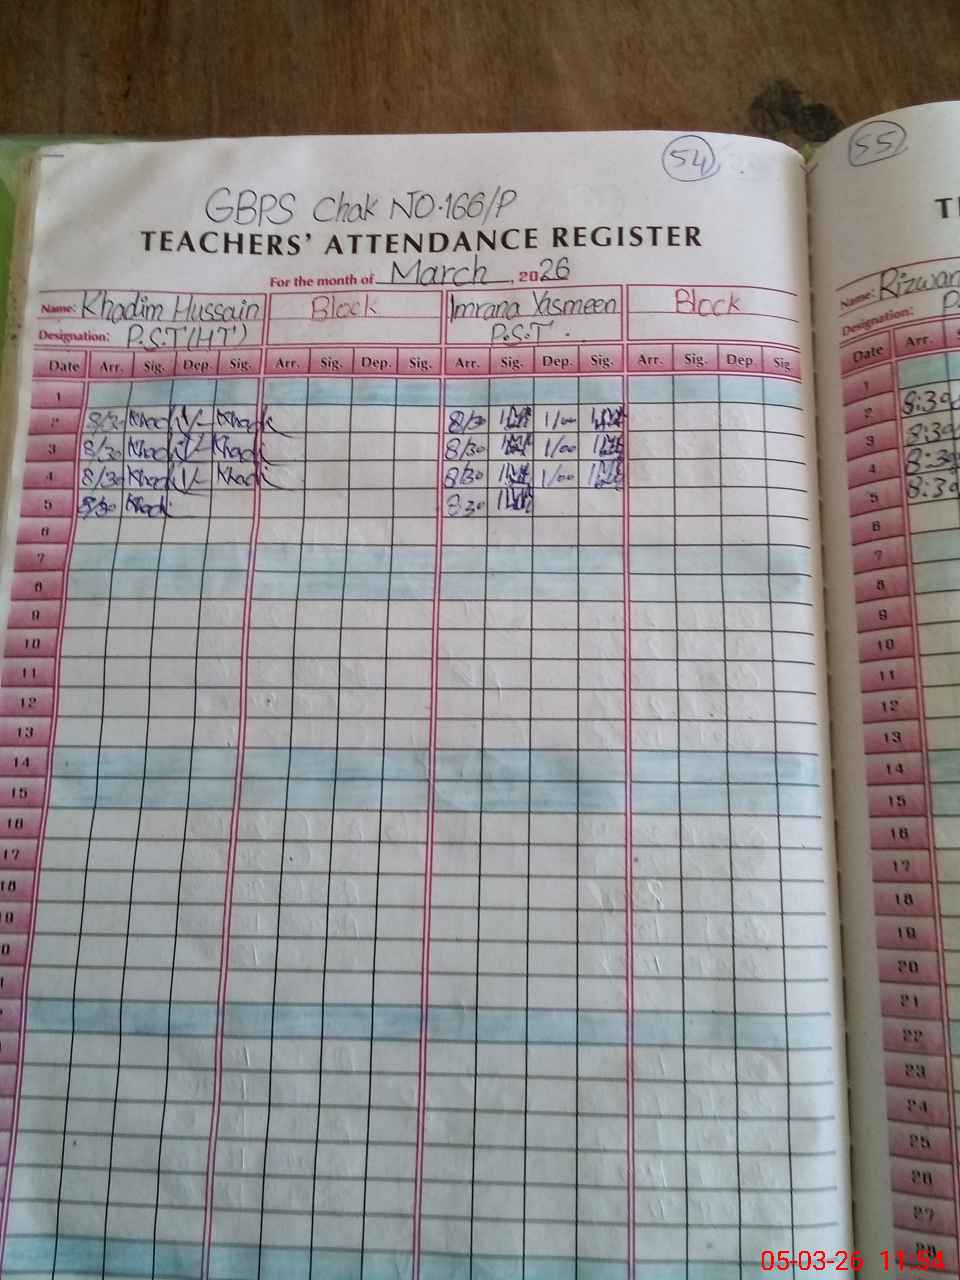 54
55
GBPS Chak NO.166/P
TEACHERS' ATTENDANCE REGISTER
For the month of March, 2026
Name: Khadim Hussain Block Imrana Yasmeen Block
Designation: P.S.T (HT) P.S.T.
Date Arr. Sig. Dep. Sig. Arr. Sig. Dep. Sig. Arr. Sig. Dep. Sig. Arr. Sig. Dep. Sig.
1
2 8/30 Khadi 1/- Khadi 8/30 1/00
3 8/30 Khadi 1/- Khadi 8/30 1/00
4 8/30 Khadi 1/- Khadi 8/30 1/00
5 8/30 Khadi 8 30
6
7
8
9
10
11
12
13
14
15
16
17
18
19
Name: Rizwan
Designation:
Date Arr.
1
2 8:30
3 8:30
4 8:30
5 8:30
6
7
8
9
10
11
12
13
14
15
16
17
18
19
20
21
22
23
24
25
26
27
28
05-03-26 11:54